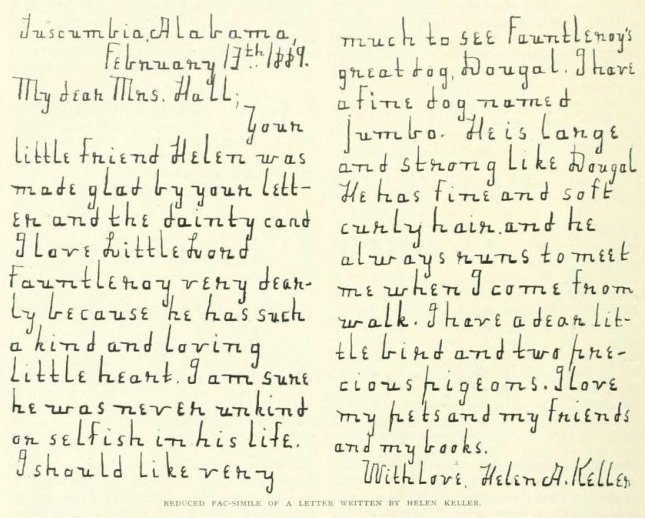 Tuscumbia, Alabama,
February 13th 1889.
My dear Mrs. Hall;
Your
little friend Helen was
made glad by your lett-
er and the dainty card
I love Little Lord
Fauntleroy very dear-
ly because he has such
a kind and loving
little heart. I am sure
he was never unkind
or selfish in his life.
I should like very
much to see Fauntleroy's
great dog, Dougal. I have
a fine dog named
Jumbo. He is large
and strong like Dougal
He has fine and soft
curly hair, and he
always runs to meet
me when I come from
walk. I have a dear lit-
tle bird and two pre-
cious pigeons. I love
my pets and my friends
and my books.
With love, Helen A. Keller
REDUCED FAC-SIMILE OF A LETTER WRITTEN BY HELEN KELLER.